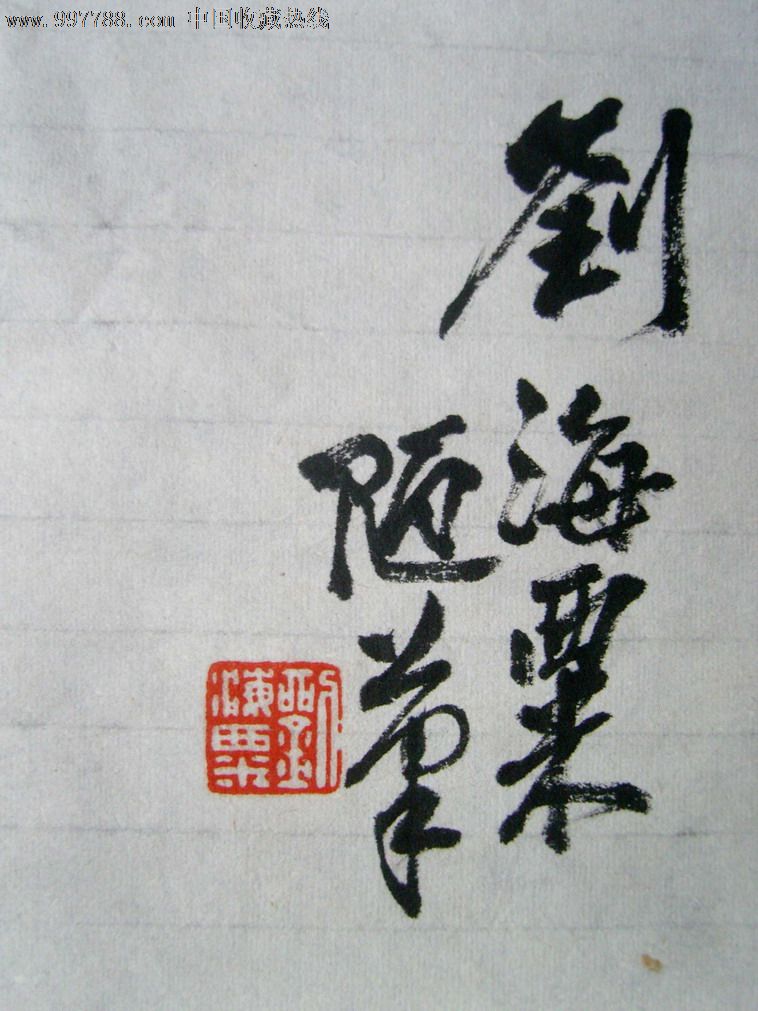 www.997788.com 中国收藏热线
劉海粟
陋筆
劉海粟